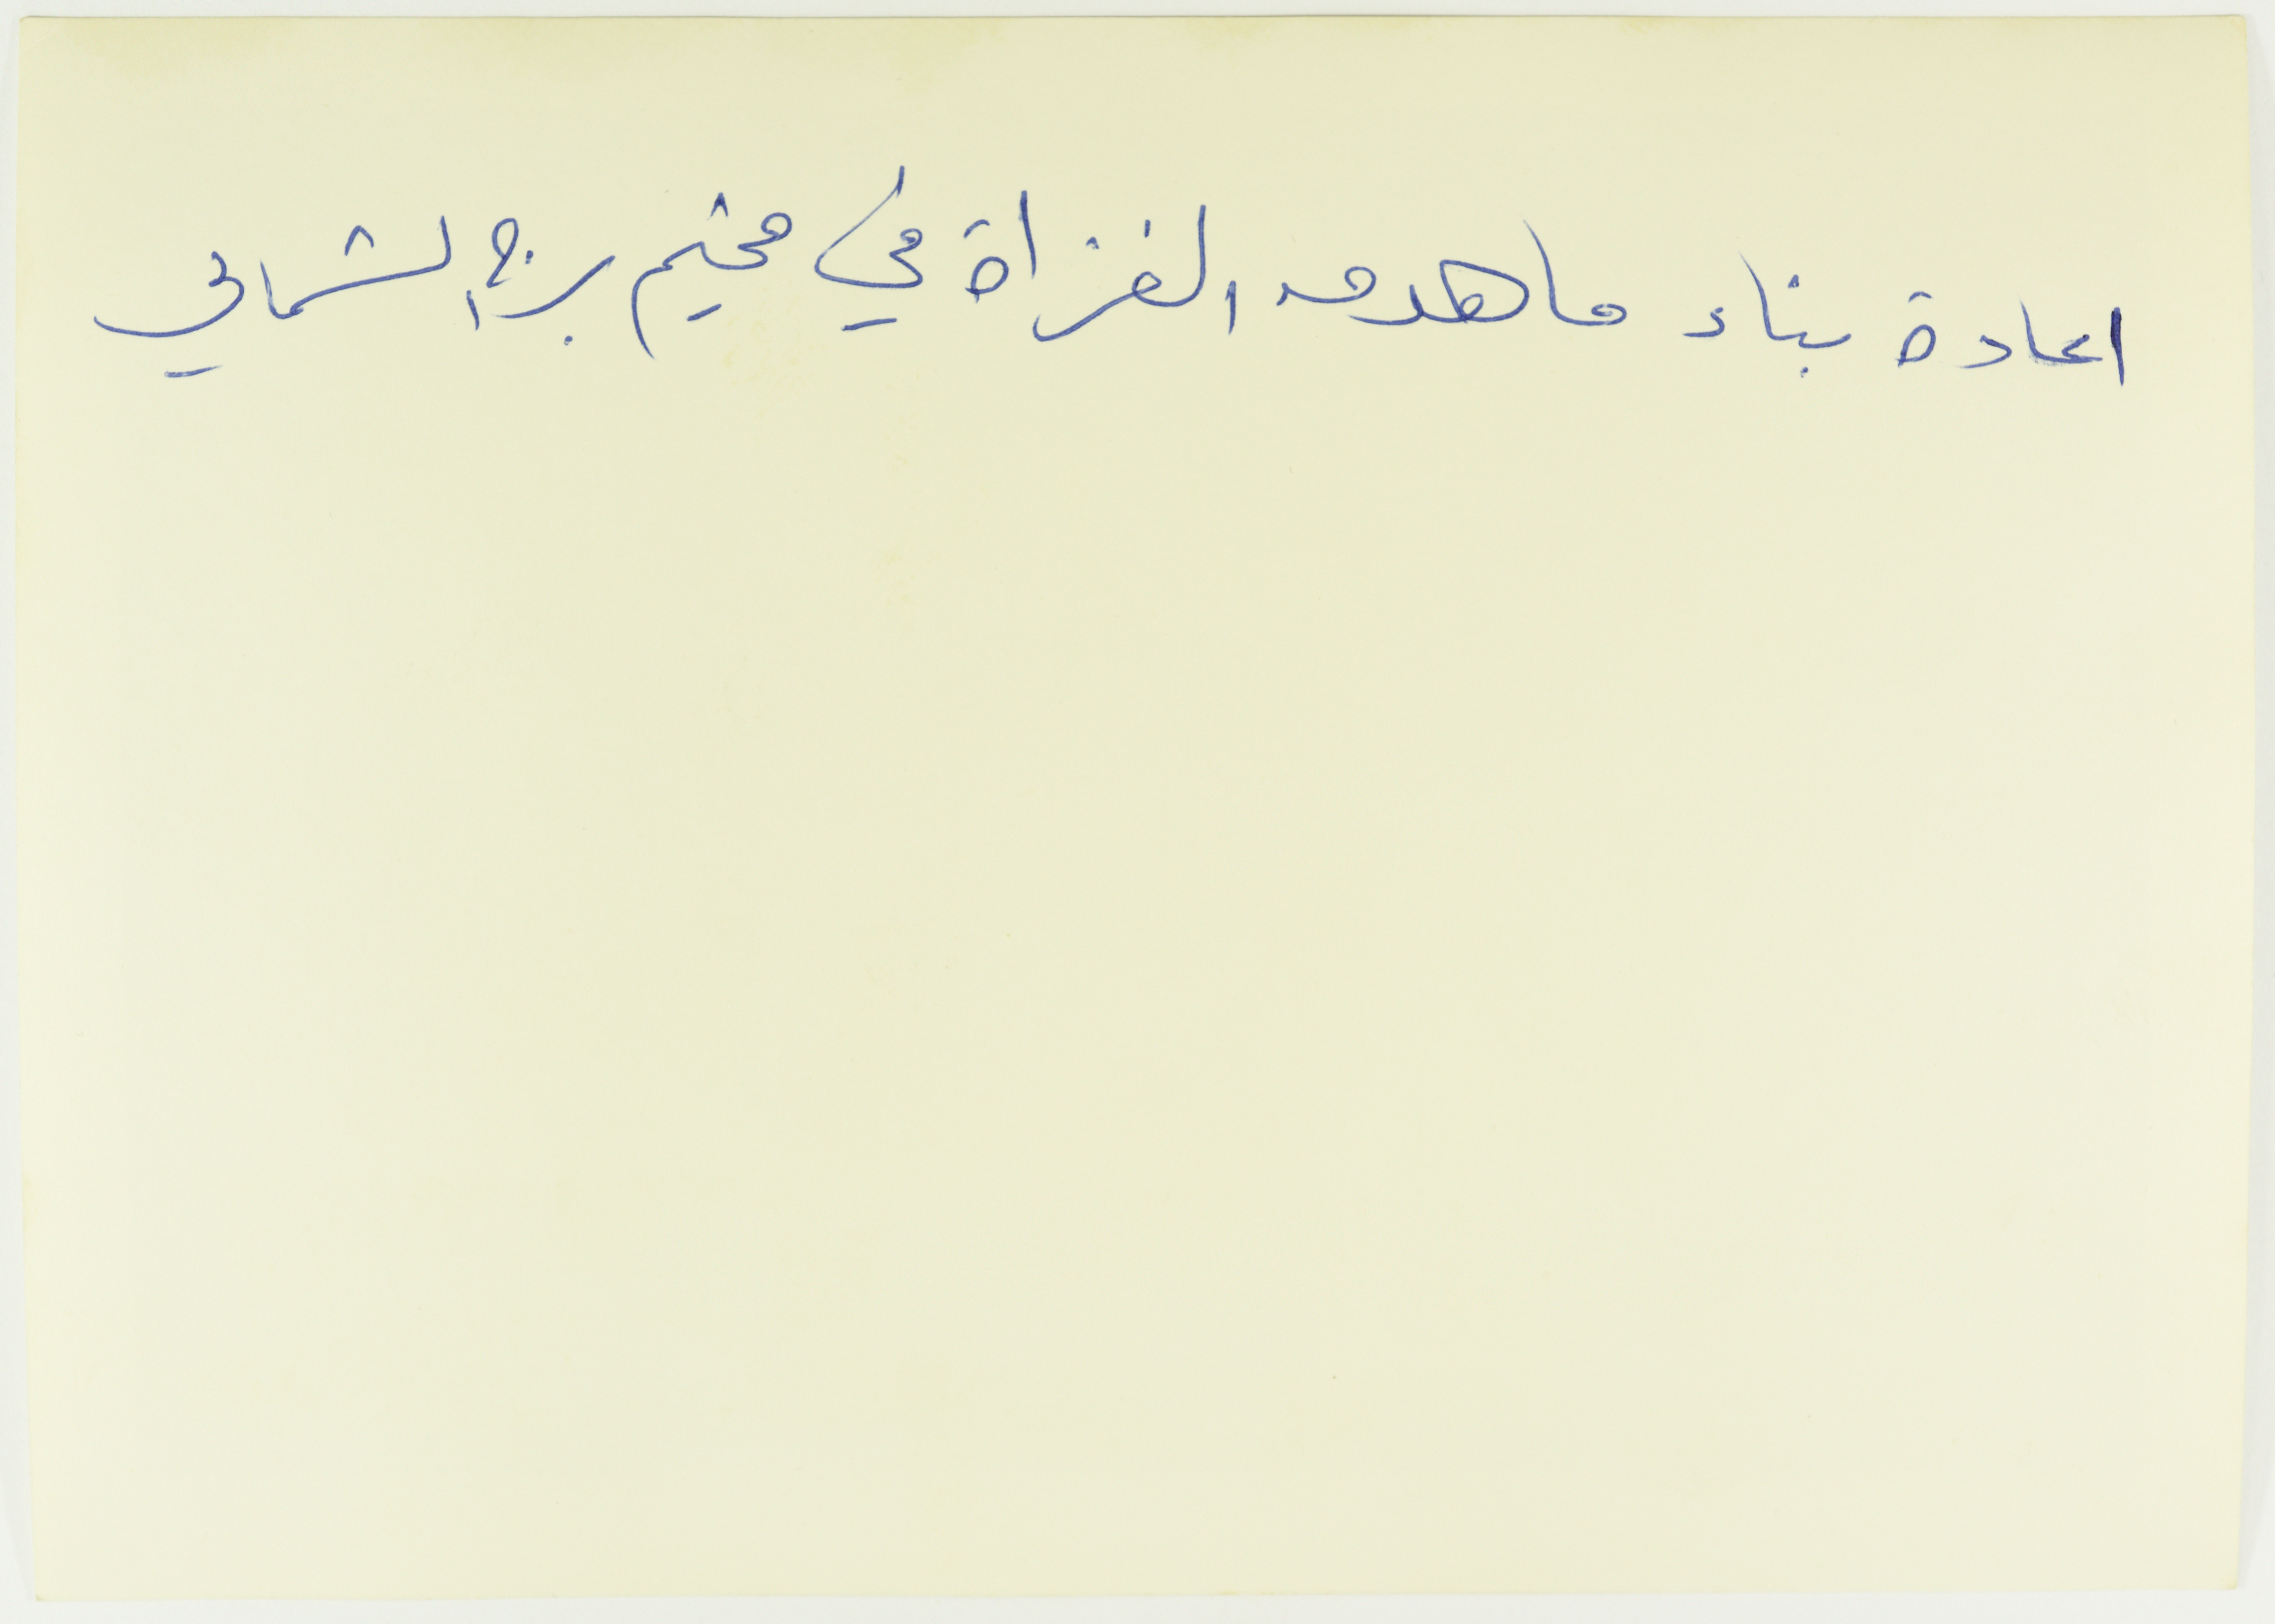 اعادة بناء ما هدمه الغزاة في مخيم برج الشمالي